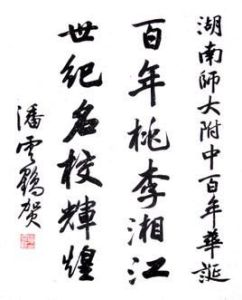 湖南師大附中百年華誕
百年桃李湘江
世纪名校輝煌
潘雲鶴贺